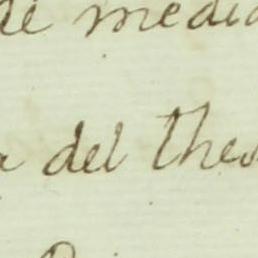 de media
a del thes